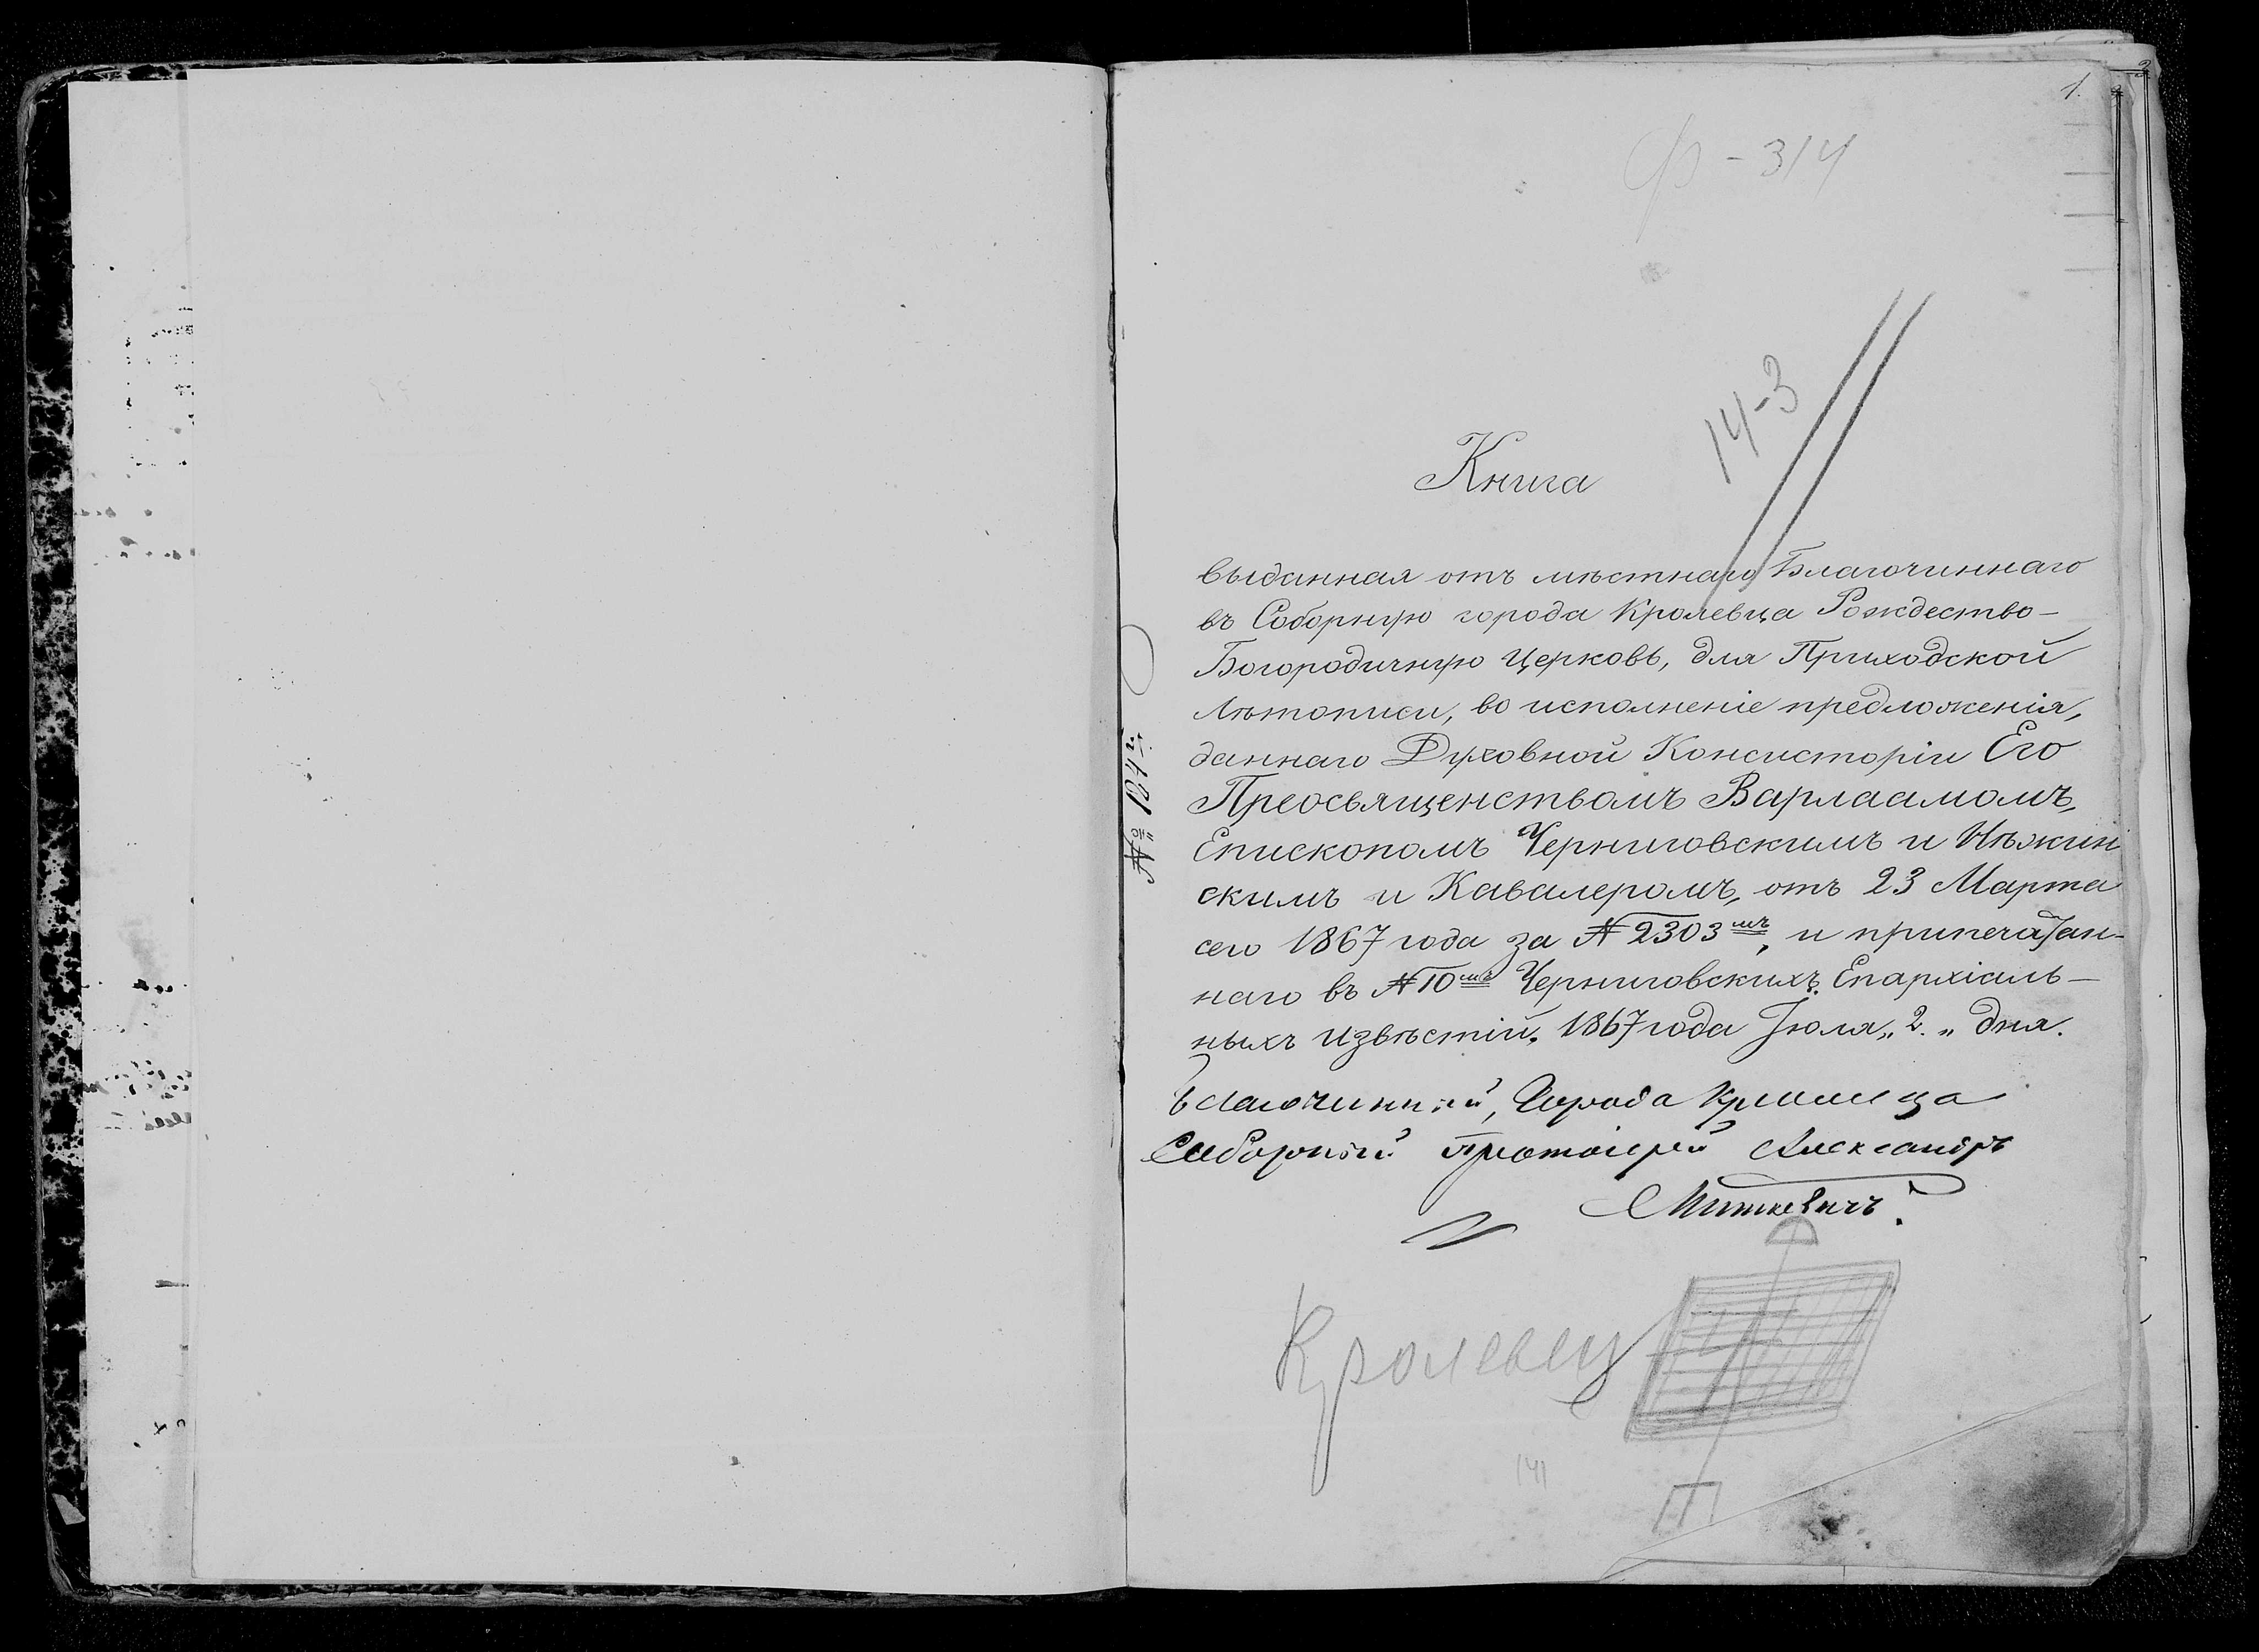 1.
Ф-314
14-3
Книга
выданная отъ мѣстнаго Благочиннаго
въ Соборную города Кролевца Рождество-
Богородичную Церковь, для Приходской
лѣтописи, во исполненіе предложенія,
даннаго Духовной Консисторіи Его
Преосвященствомъ Варлаамомъ,
Епископомъ Черниговскимъ и Нѣжин
скимъ и Кавалеромъ, отъ 23 Марта
сего 1867 года за № 2303мъ, и припечатан-
наго въ № 10мъ Черниговскихъ Епархіаль-
ныхъ извѣстій. 1867 года Іюля „2.„ дня.
Благочинный, Города Кролевца
Соборный Протоіерей Александръ
Миткевичъ.
Кролевец
141
№ 184